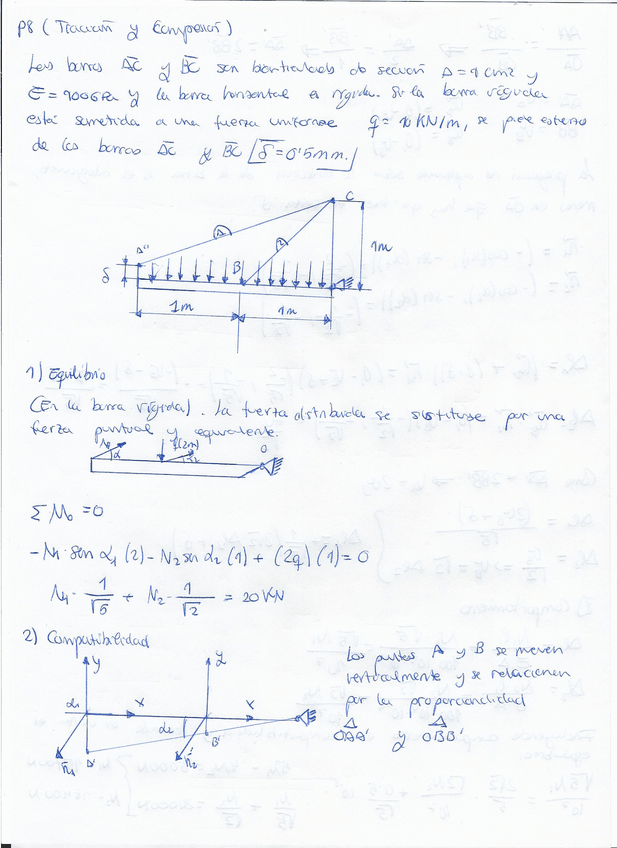 P8 (Tracción y Compresión)
Las barras A̅C̅ y B̅C̅ son biarticuladas de sección A=1cm² y
E=100GPa y la barra horizontal es rígida. Si la barra rígida
está sometida a una fuerza uniforme q=10 KN/m, se pide esfuerzo
de las barras A̅C̅ y B̅C̅ [δ=0'5mm.]
C
1
2
A"
B
1m
δ
1m
1m
1) Equilibrio
(En la barra rígida). La fuerza distribuida se sustituye por una
fuerza puntual y equivalente.
N1
α1
q(2m)
α2
O
ΣMo=0
-N1·sen α1 (2) - N2 sen α2 (1) + (2q) (1) = 0
N1· 1/√5 + N2· 1/√2 = 20 KN
2) Compatibilidad
y
y
α1
x
x
α2
n̅1
A'
n̅2
B'
Los puntos A y B se mueven
verticalmente y se relacionan
por la proporcionalidad
OAA' y OBB'